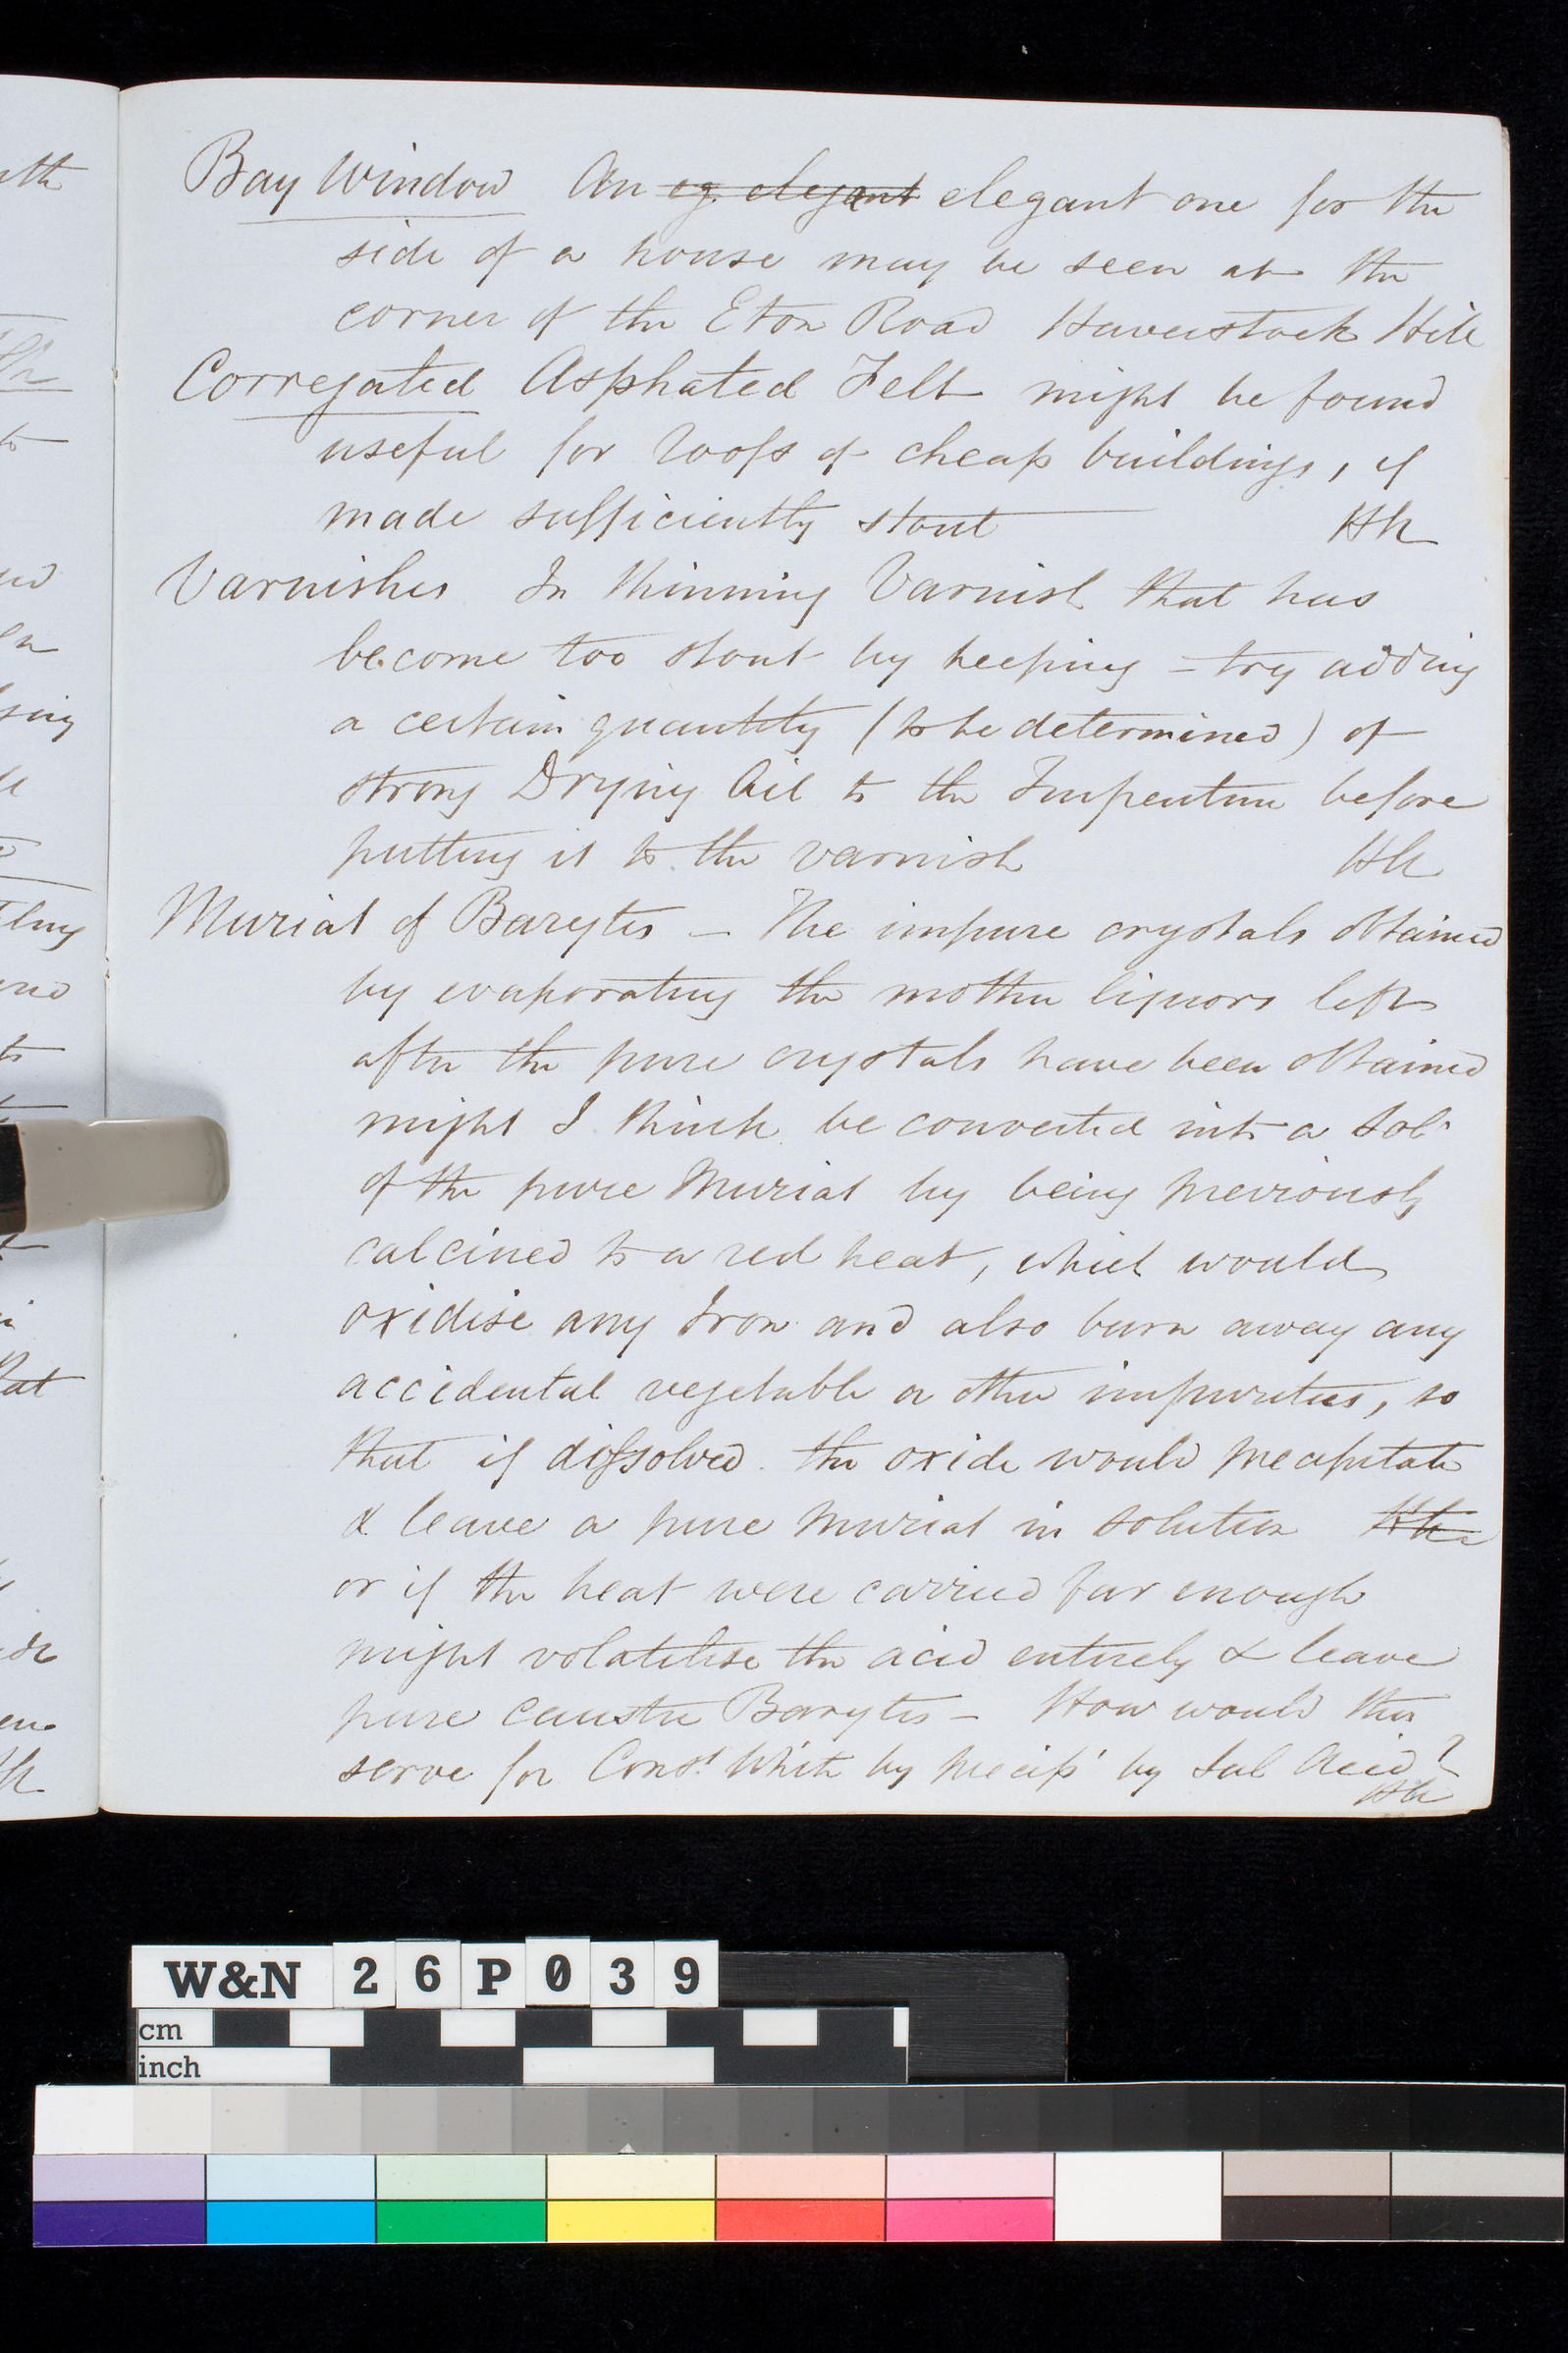 Bay Window An eg. elegant elegant one for the
side of a house may be seen at the
corner of the Eton Road Haverstock Hill
Corregated Asphated Felt might be found
useful for roofs of cheap buildings, if
made sufficiently stout HH
Varnishes In thinning Varnish that has
become too stout by keeping – try adding
a certain quantity (to be determined) of
strong Drying Oil to the Turpentine before
putting it to the varnish
Muriat of Barytes – The impure crystals obtained
by evaporating the mother liquors left
after the pure crystals have been obtained
might I think be converted into a Sol.
of the pure Muriat by being previously
calcined to a red heat, which would
oxidise any Iron and also burn away any
accidental vegetable or other impurities, so
that if dissolved the oxide would precipitate
& leave a pure Muriat in solution
or if the heat were carried far enough
might volatilise the acid entirely & leave
pure caustic Barytes – How would this
serve for Const. White by precip by Sul Acid?
W&N 26P039
cm
inch